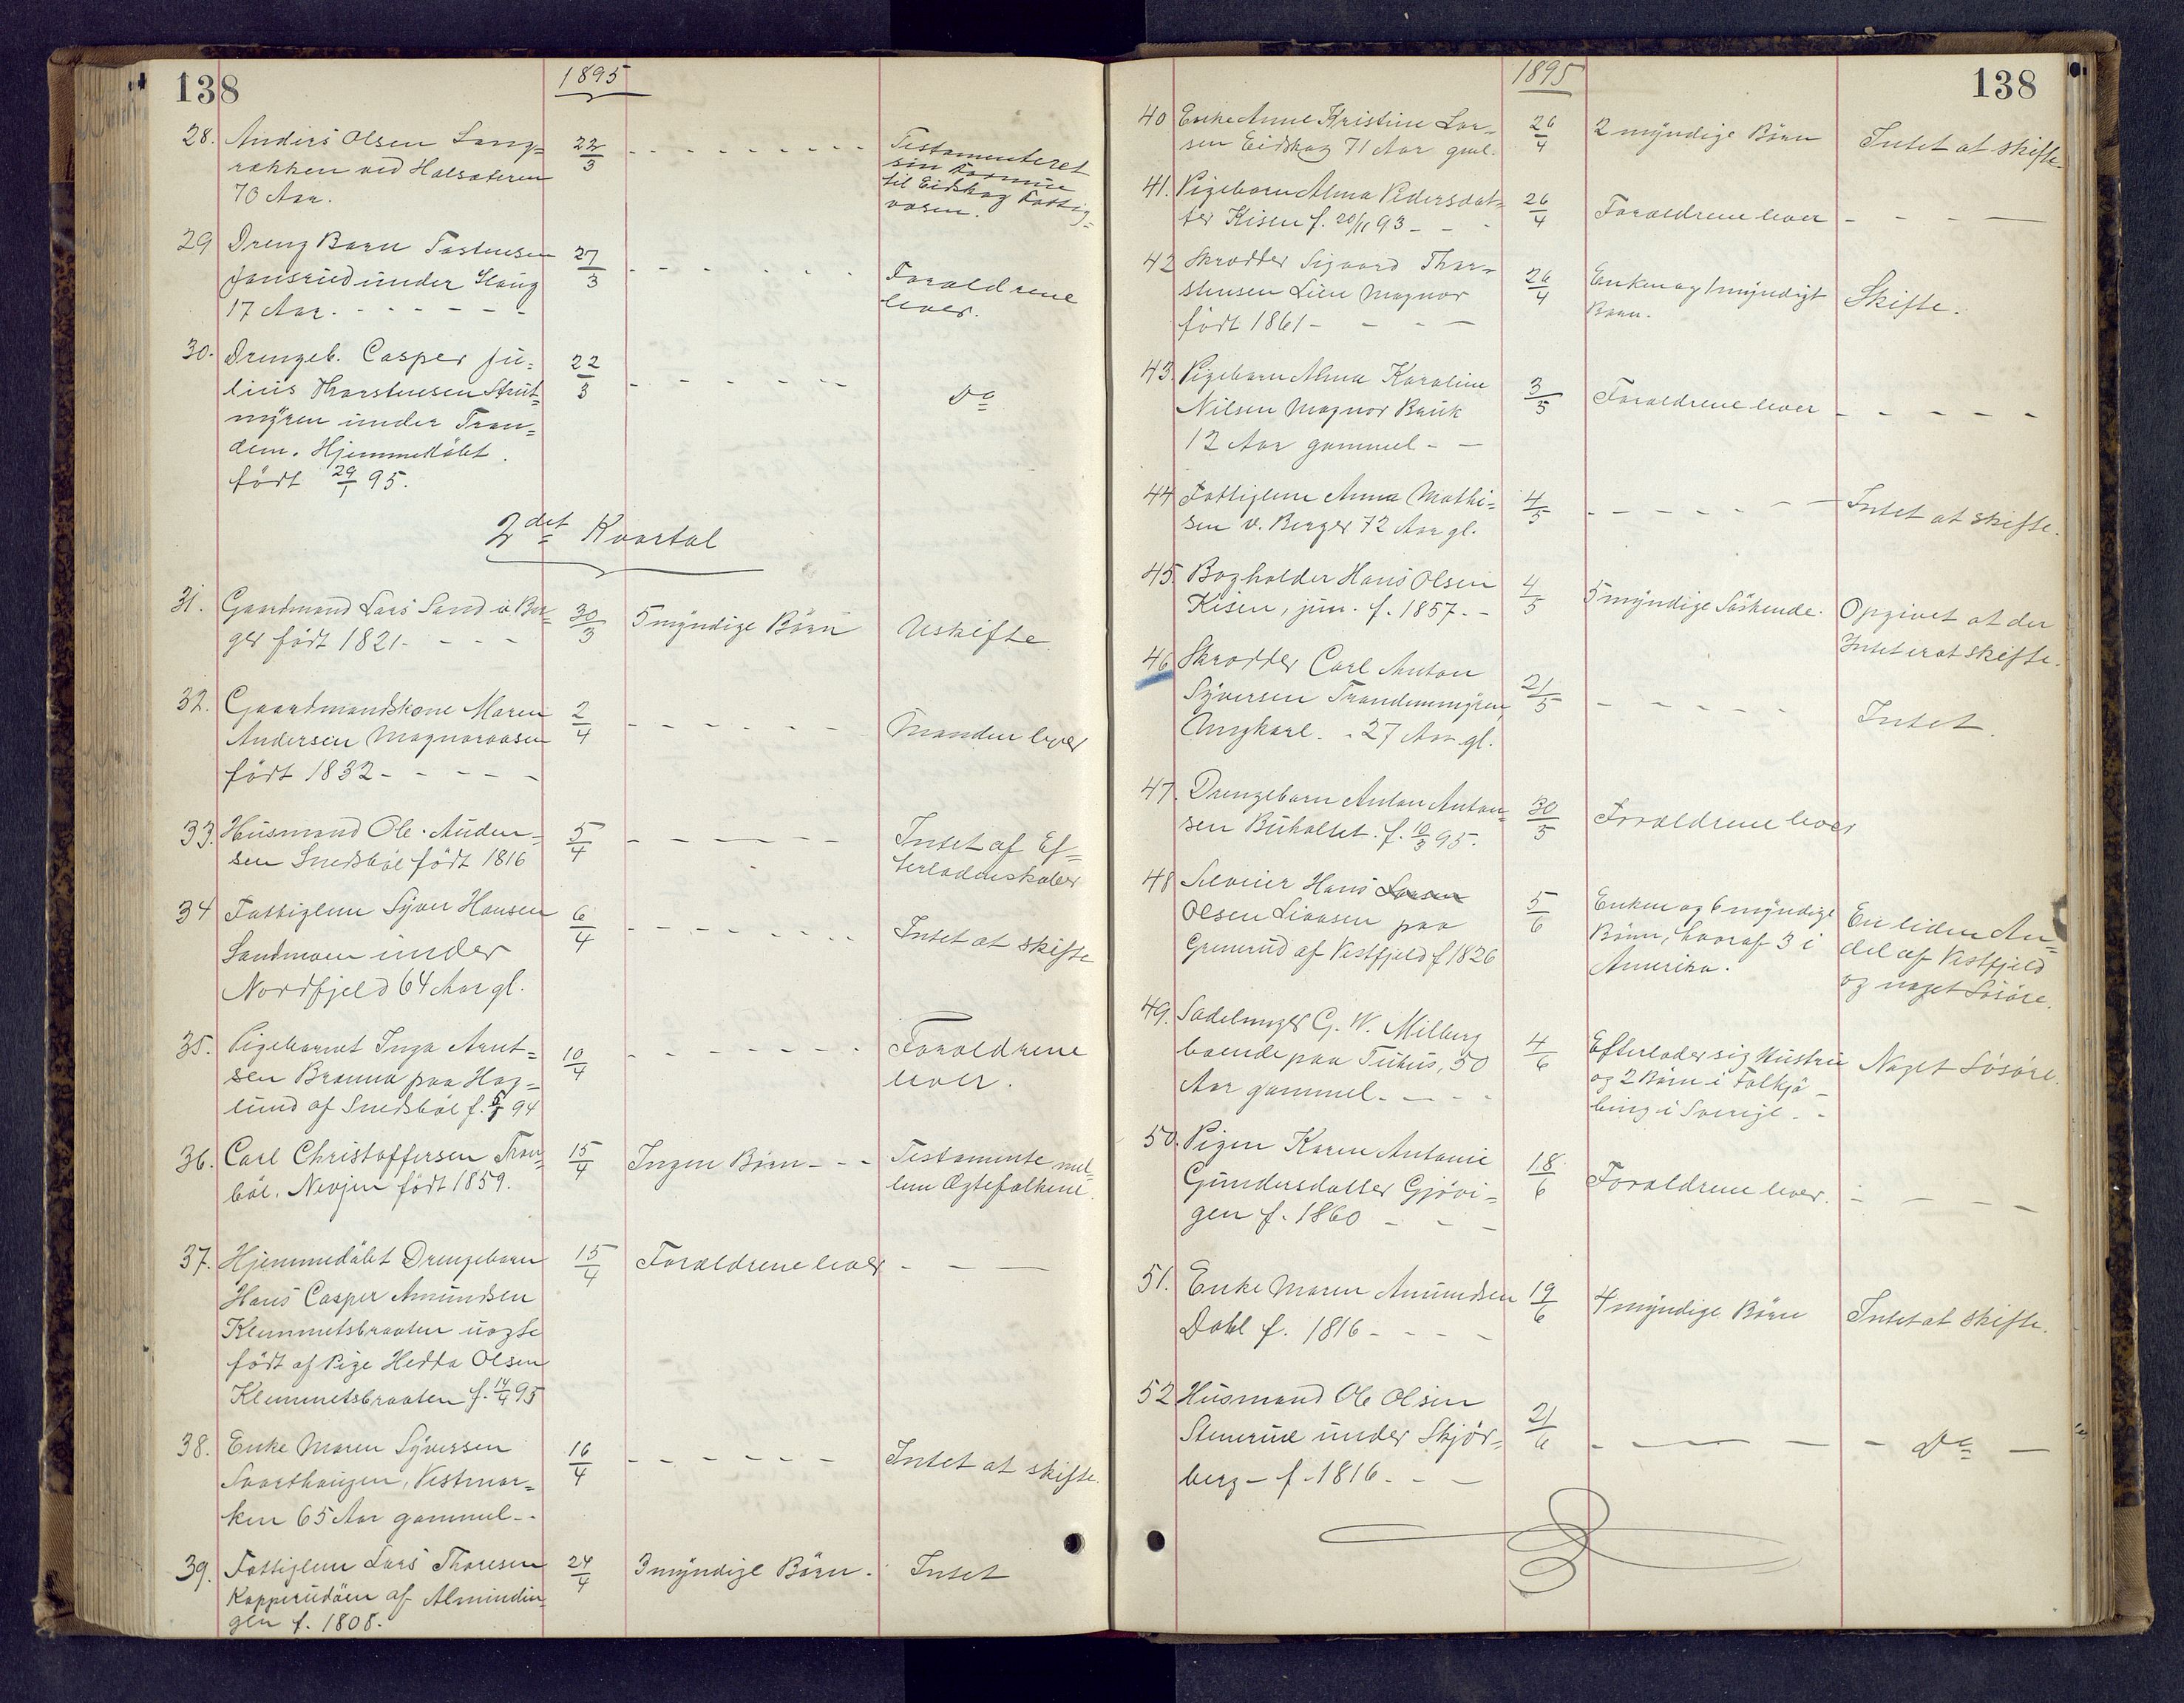 138
1895
28. Anders Olsen Lang-
rakken ved Halsæteren
70 Aar.
22/3
Testamenteret
sin Formue
til Eidskog Fattig-
væsen.
29 Dreng Barn Fastensen
Jonsrud under Haug
17 Aar.
27/3
Forældrene
lever.
30. Drengeb. Casper Ju-
lius Thorstensen Strüt-
myren under Tran-
dem. Hjemmedöbt.
født 29/1 95.
22/3
Do
2det Kvartal
31. Gaardmand Lars Sand i Ber-
ger født 1821.
30/3
5 myndige Börn
Uskifte
32. Gaardmandskone Maren
Andersen Magnoraasen
født 1832
2/4
Manden lever
33. Husmand Ole Auden-
sen Snedsböl født 1816
5/4
Intet af Ef-
terladenskaber
34 Fattiglem Syver Hansen
Sandmoen under
Nordfjeld 64 Aar gl.
6/4
Intet at skifte
35. Pigebarnet Inga Arnt-
sen Brænna paa Hag-
lund af Snedsböl f. 94
10/4
Forældrene
lever.
36. Carl Christoffersen Tran-
böl. Nevjen født 1859.
15/4
Ingen Börn
Testamente mel-
lem Ægtefolkene.
37. Hjemmedöbt Drengebarn
Hans Casper Amundsen
Klemmetsbraaten uægte
født af Pige Hedda Olsen
Klemmetsbraaten f. 14/4 95
15/4
Forældrene lever
38. Enke Maren Syversen
Svarthaugen, Vestmar-
ken 65 Aar gammel
16/4
Intet at skifte.
39. Fattiglem Lars Thoresen
Kopperudöen af Almindin-
gen f. 1808.
24/4
3 myndige Börn.
Intet
1895
138
40 Enke Anne Kristine Lar-
sen Eidskog 71 Aar gml.
26/4
2 myndige Börn
Intet at skifte
41. Pigebarn Alma Pedersdat-
ter Kisen f. 20/11 93
26/4
Forældrene lever
42 Skrædder Sigvard Thor-
stensen Lien Magnor
født 1861
26/4
Enken og 1 myndigt
Barn.
Skifte.
43. Pigebarn Alma Karoline
Nilsen Magnor Bruk
12 Aar gammel
3/5
Forældrene lever
44 Fattiglem Anna Mathi-
sen v. Berger 72 Aar gl.
4/5
Intet at skifte.
45. Bogholder Hans Olsen
Kisen, jun. f. 1857.
4/5
5 myndige Söskende.
Opgivet at der
Intet er at skifte.
46 Skrædder Carl Anton
Syversen Trandemmyren,
Ungkarl. 27 Aar gl.
21/5
Intet.
47. Drengebarn Anton Anton-
sen Buholtet. f. 10/3 95.
30/5
Forældrene lever
48 Hans Larsen
Olsen Liaasen paa
Grenerud af Vestfjeld f 1826
5/6
Enken og 6 myndige
Börn, hvoraf 3 i
Amerika.
En liden An-
del af Vestfjeld
og noget Lösöre.
49. Sadelmager G. W. Milberg
boende paa 50
Aar gammel.
4/6
Efterlader sig Hustru
og 2 Börn i Falkjö-
bing i Sverige.
Noget Lösöre.
50. Pigen Karen Antonie
Gundersdatter Gjövi-
gen f. 1860
18/6
Forældrene lever.
51. Enke Maren Amundsen
Dahl f. 1816
19/6
4 myndige Börn
Intet at skifte.
52 Husmand Ole Olsen
Stenerud under Skjör-
berg f. 1816.
21/6
Do